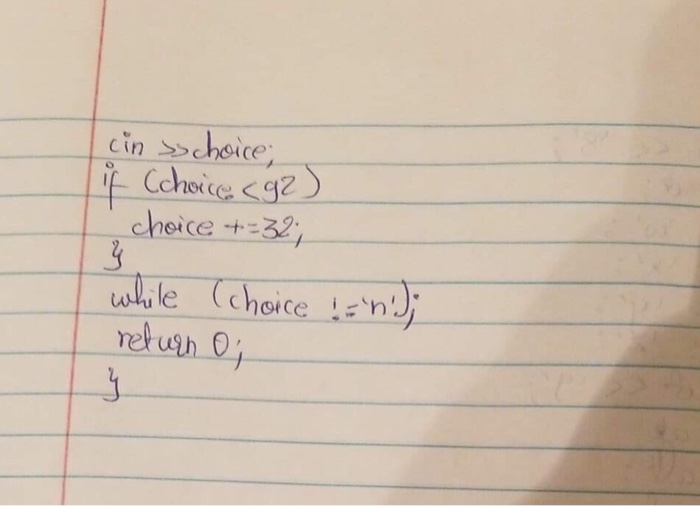 cin >>choice;
if (choice <92)
choice +=32;
}
while (choice !='n');
return 0;
}